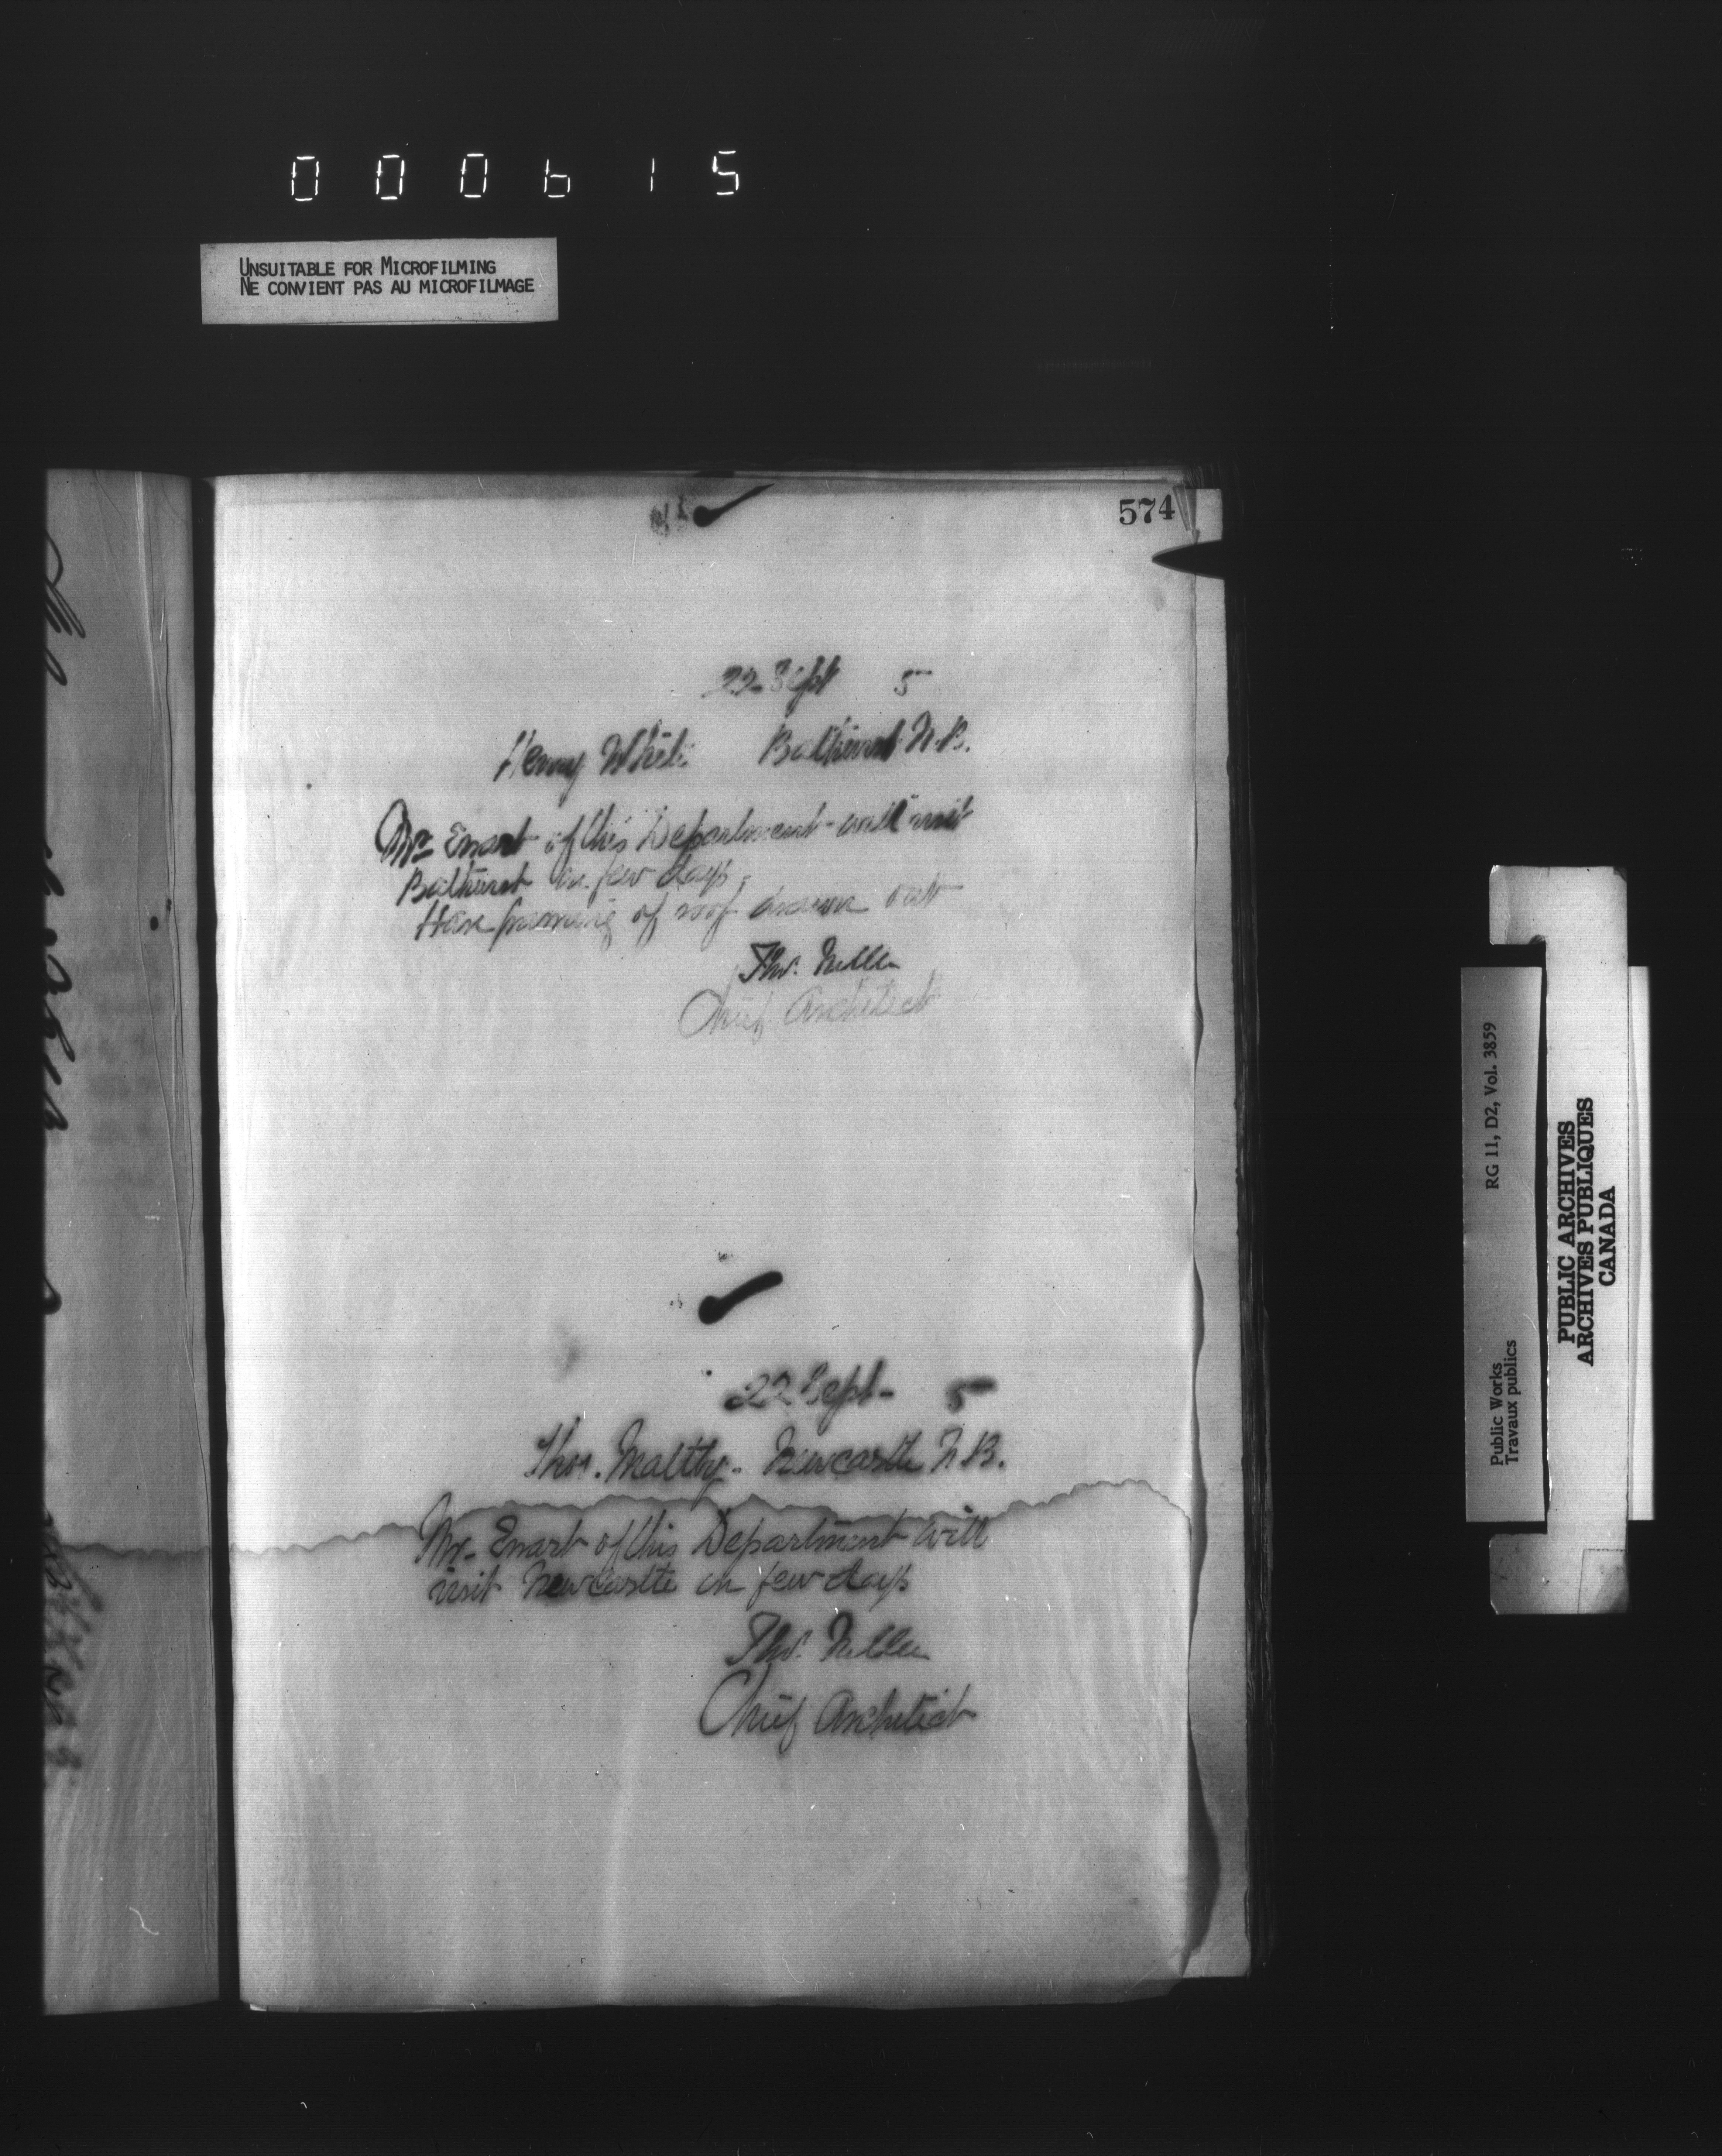 000615
UNSUITABLE FOR MICROFILMING
NE CONVIENT PAS AU MICROFILMAGE
574
22 Sept 5
Henry White Bathurst N.B.
Mr Ewart of this Department will visit
Bathurst in few days
Have framing of roof drawn out
Thos. Fuller
Chief Architect
22 Sept - 5
Thos. Maltby - Newcastle N.B.
Mr - Ewart of this Department will
visit Newcastle in few days
Thos. Fuller
Chief Architect
Public Works
Travaux publics
RG 11, D2, Vol. 3859
PUBLIC ARCHIVES
ARCHIVES PUBLIQUES
CANADA